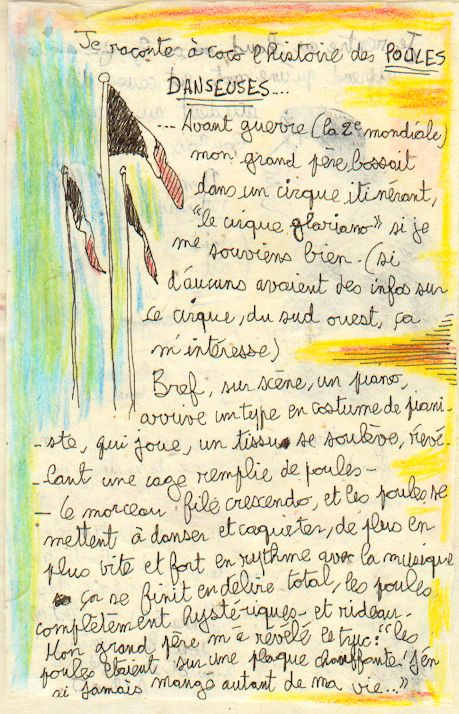 Je raconte à coco l'histoire des POULES
DANSEUSES...
--- Avant guerre (la 2e mondiale)
mon grand père bossait
dans un cirque itinérant,
"le cirque glariano" si je
me souviens bien - (si
d'aucuns avaient des infos sur
ce cirque, du sud ouest, ça
m'intéresse)
Bref, sur scène, un piano,
arrive un type en costume de piani-
-ste, qui joue, un tissu se soulève, révé-
-lant une cage remplie de poules -
- le morceau file crescendo, et les poules se
mettent à danser et caqueter, de plus en
plus vite et fort en rythme avec la musique
ça se finit en délire total, les poules
complètement hystériques - et rideau -
Mon grand père m'a révélé le truc : "les
poules étaient sur une plaque chauffante ! j'en
ai jamais mangé autant de ma vie..."